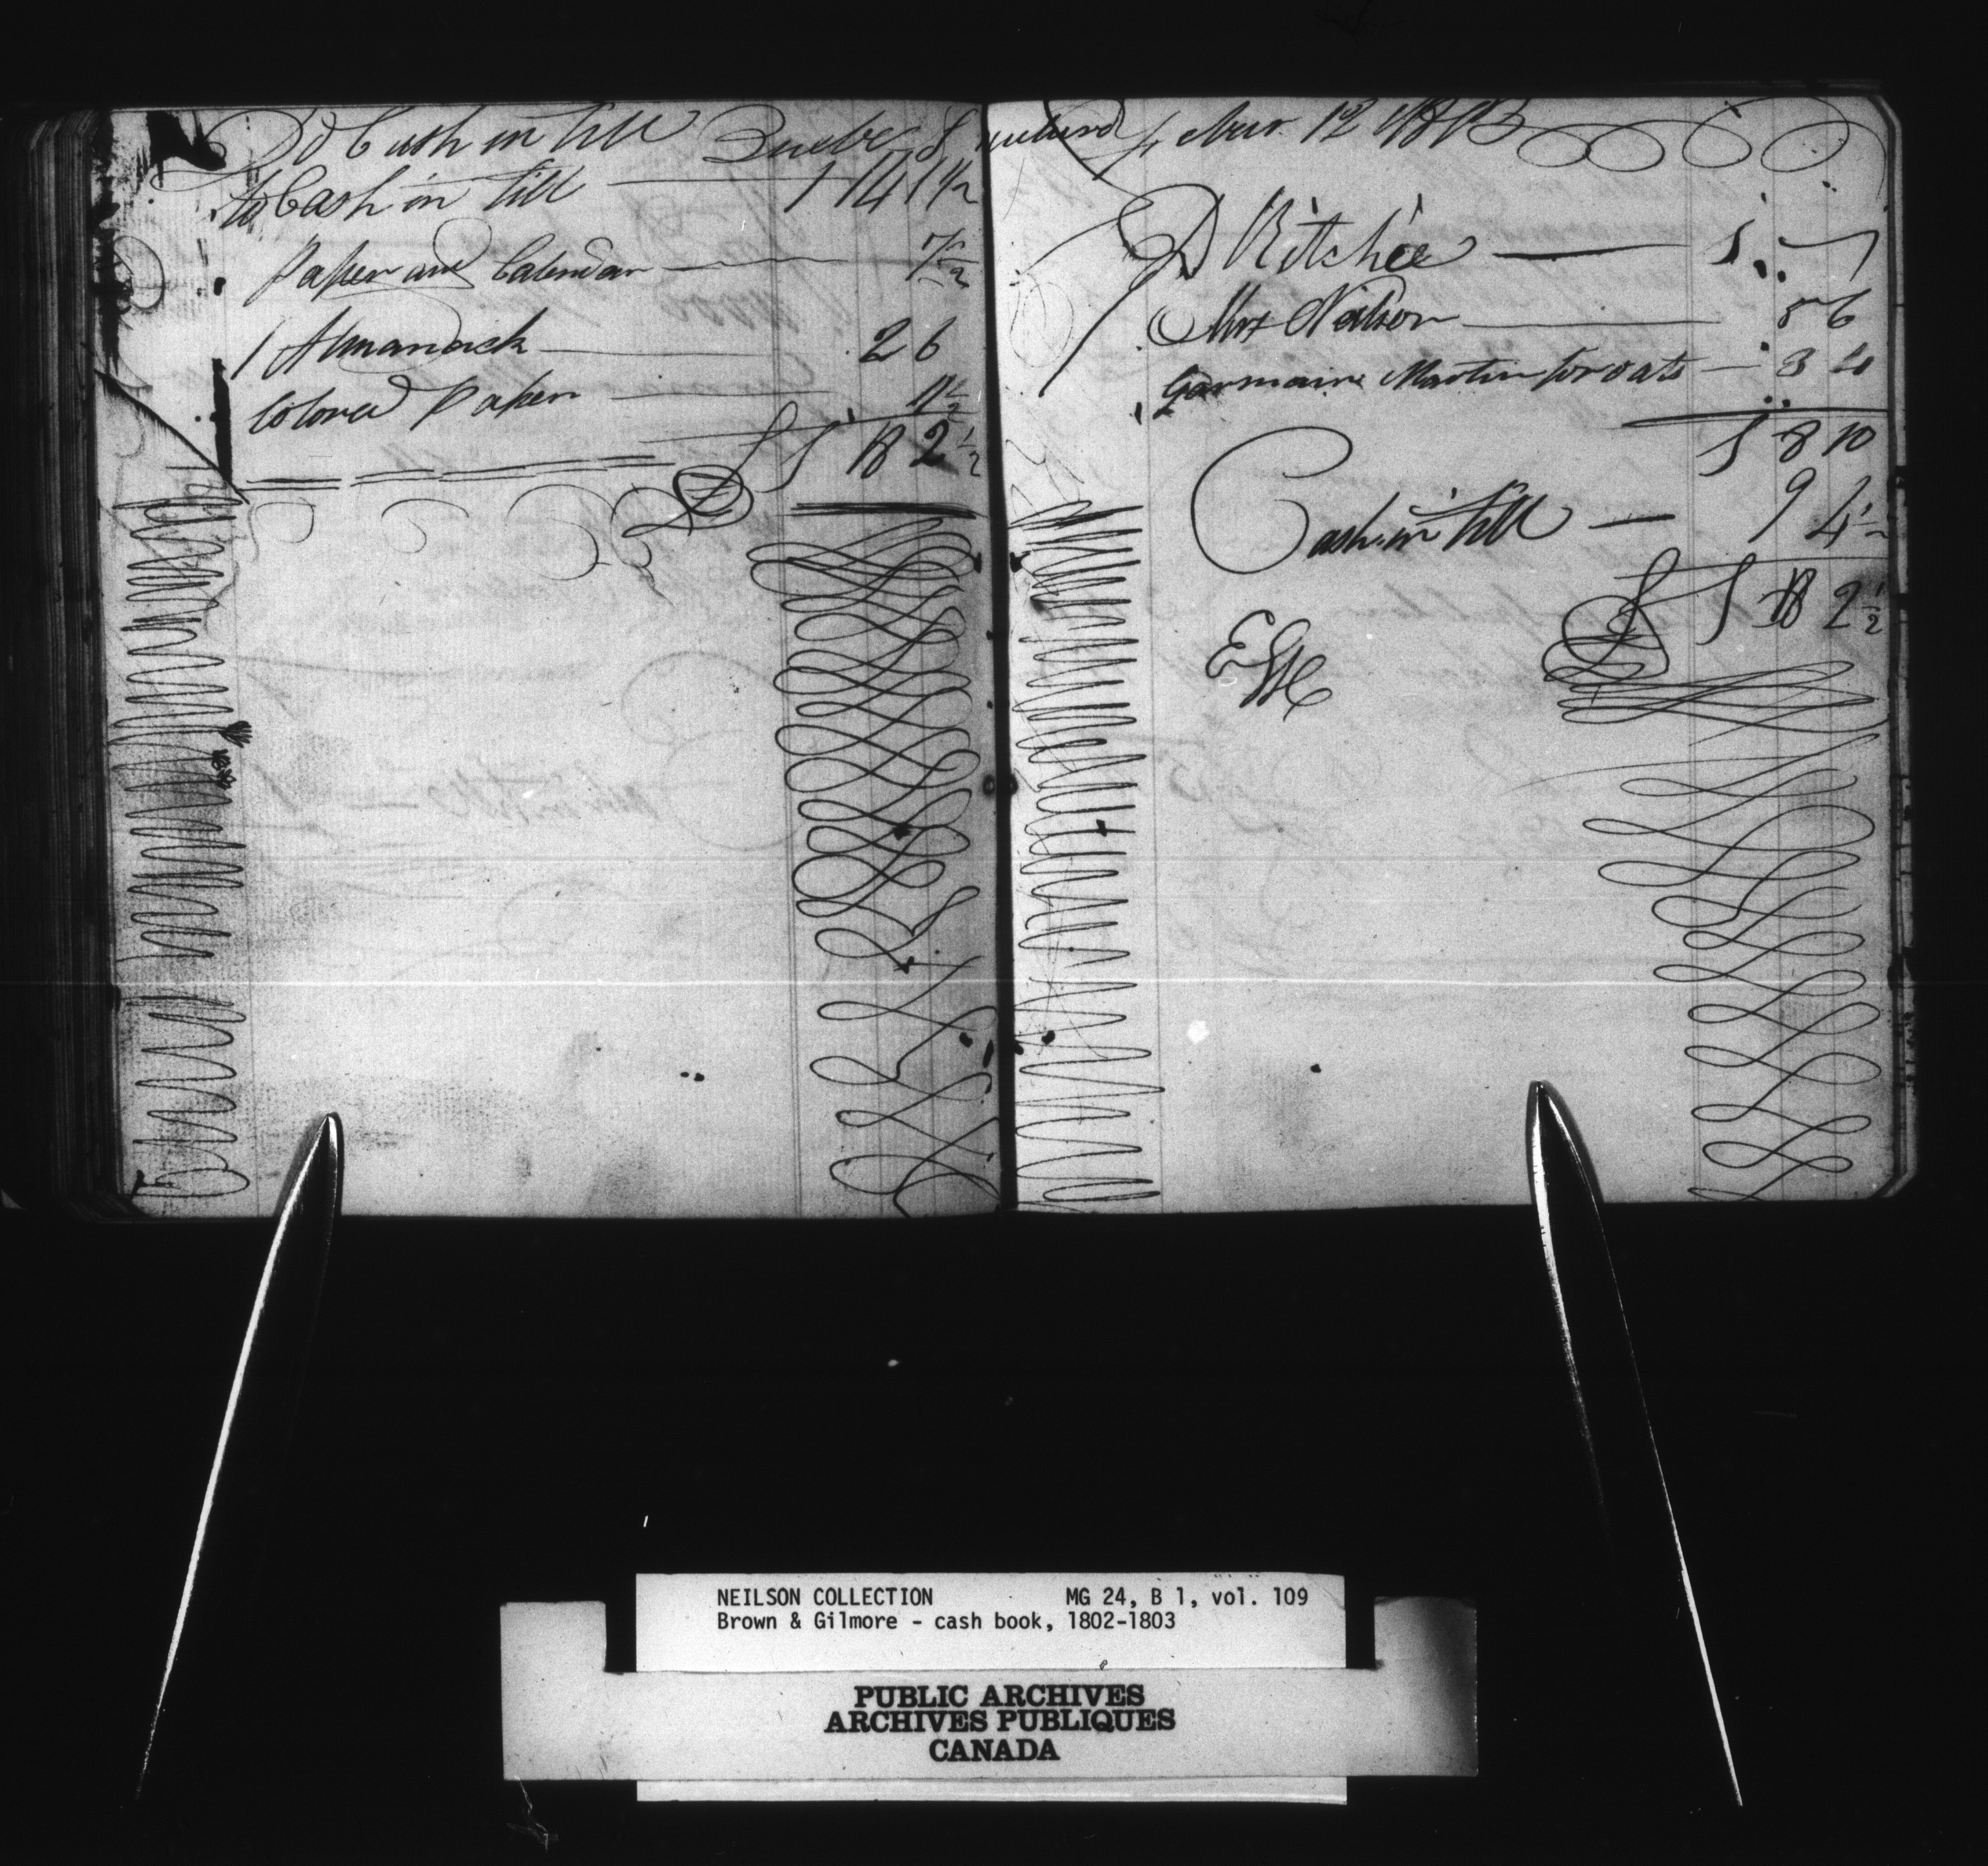 To Cash in till Quebec Saturd Febur. 12 1803
to Cash in till — 1 14 1 1/2
Paper and Calendar — 7 1/2
1 Almanack — 2 6
Colored Paper — 11 1/2
£ 1 18 2 1/2
D Ritchie — 1 . —
Mrs Neilson — 5 6
Germaine Martin for oats — 3 4
1 8 10
Cash in till — 9 4 1/2
£ 1 18 2 1/2
NEILSON COLLECTION MG 24, B 1, vol. 109
Brown & Gilmore - cash book, 1802-1803
PUBLIC ARCHIVES
ARCHIVES PUBLIQUES
CANADA